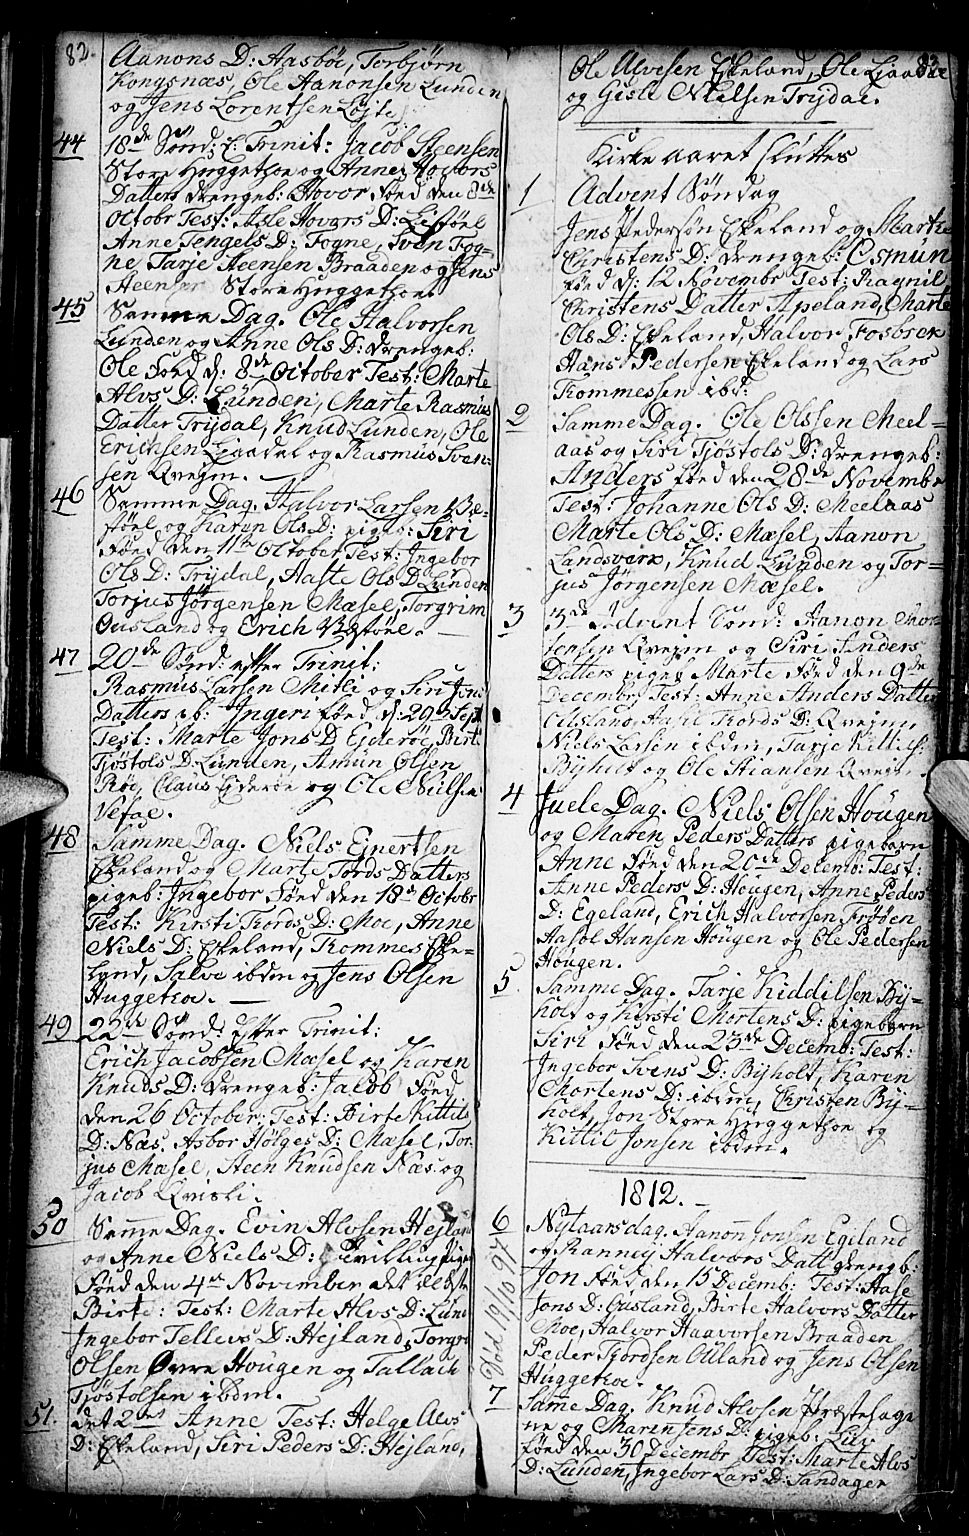 82.
Aanons D: Aasböe, Torbjörn
Kongsnæs, Ole Aanonsen Lunden
og Jens Lorentsen Löite
44
18de Sönd: E: Trinit: Jacob Steensen
Store Huggetsoe og Anne Hovors
Datters Drengeb: Hovor Föed den 8de
Octobr Test: Asle Hovors D:
Anne Tengels D: Fogne, Sven Fog=
ne Tarje Steensen Braaden og Jens
Steensen Store Huggetsoe.
45
Samme Dag. Ole Halvorsen
Lunden og Anne Ols D: Drengeb:
Ole Föed d: 8de October Test: Marte
Alvs D: Lunden, Marte Rasmus
Datter Trydal, Knud Lunden, Ole
Erichsen Liaadal og Rasmus Sven=
sen Qveim.
46
Samme Dag. Halvor Larsen Væ=
föel og Karen Ols D: pigeb: Siri
Föed den 11te October Test: Ingebor
Ols D: Trydal, Aaste Ols D: Lunden
Torjus Jörgensen Mæsel, Torgrim
Ousland og Erich Væföel.
47
20de Sönd: efter Trinit:
Rasmus Larsen Mitli og Siri Jons
Datters pb: Ingeri Föed d: 29 Sept
Test: Marte Jons D: Ejderöe, Birte
Tjöstols D: Lunden, Amun Olsen
Röe, Claus Ejderöe og Ole Nielsen
Vefae.
48
Samme Dag. Niels Ejnertsen
Ekeland og Marte Tords Datters
pigeb: Ingebor Föed den 18de Octobr
Test: Kirsti Tords D: Moe, Anne
Niels D: Ekeland, Tommes Eke=
land, Salve ibdm og Jens Olsen
Huggetsoe.
49
22de Sönd: Efter Trinit:
Erich Jacobsen Mæsel og Karen
Knuds D: Drengeb: Jacob Föed
den 26 October. Test: Birte Kittils
D: Næs, Asbor Hölges D: Mæsel, Tor=
jus Mæsel, Steen Knudsen Næs og
Jacob Qvisli.
50
Same Dag. Evin Alvsen Hejland
og Anne Niels D: Tvilling piger
Föed den 4de November det ældste
Birte: Test: Marte Alvs D: Lund
Ingebor Tellevs D: Hejland, Torgri
Olsen Övre Hougen og Tallach
Tjöstolsen ibdm.
51.
det 2det Anne Test: Helge Alvs
D: Ekeland, Siri Peders D: Hejland,
83
Ole Alvesen Ekeland, Ole Liaadal
og Gisle Nielsen Trydal.
Kirke aaret sluttes
1
Advent Söndag
Jens Pedersön Ekeland og Marte
Christens D: Drengeb: Osmun
Föed d: 12 Novembr Test: Ragnil
Christens Datter Apeland, Marte
Ols D: Ekeland, Halvor Fosbrek
Hans Pedersen Ekeland og Lars
Tommessen ibd:
2
Samme Dag. Ole Olssen Meel=
aas og Siri Tjöstols D: Drengeb:
Anders Föed den 28de Novembr
Test: Johanne Ols D: Meelaas
Marte Ols D: Mæsel, Aanon
Landsverk, Knud Lunden og Tor=
jus Jörgensen Mæsel.
3
3de Advent Sönd: Aanon Mor=
tensen Qveim og Siri Anders
Datters pigeb: Marte Föed den 9de
Decembr Test: Anne Anders Datter
Ousland, Aasil Tords D: Qveim,
Niels Larsen ibdm, Tarje Kittils:
Byholt og Ole Stiansen Qveim.
4
Juele Dag. Niels Olsen Hougen
og Maren Peders Datters pigebarn
Anne Föed den 20de Decemb: Test:
Anne Peders D: Hougen, Anne Peders
D: Egeland, Erich Halvorsen Fröÿen
Aasol Hansen Hougen og Ole Pedersen
Hougen.
5
Samme Dag. Tarje Kiddilsen By=
holt og Kirsti Mortens D: pigebarn
Siri Föed den 23de Decemb: Test:
Ingebor Svens D: Byholt, Karen
Mortens D: ibdm, Christen By=
holt, Jon Store Huggetsoe og
Kittil Jonsen ibdm.
1812.
6
Nytaarsdag. Aanon Jonsen Egeland
og Ranney Halvors Datt Drengb:
Jon Föed den 15 Decemb: Test: Aase
Jons D: Ousland, Birte Halvors Datter
Moe, Halvor Haavorsen Braaden
Peder Tjordsen Ouland og Jens Olsen
Huggetsoe.
Död 19/10 97
7
Same Dag. Knud Alvsen Præstehage
ne og Maren Jens D: pigeb: Liv
Föed den 30 Decembr Test: Marte Alvs
D: Lunden, Ingebor Lars D: Sandager